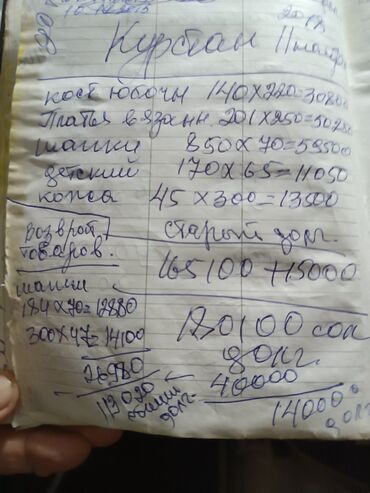 Курбан
кост юбочн 140х220=30800
Платья вязанн. 201х250=50250
шапки 850х70=59500
детский 170х65=11050
кожса 45х300=13500
возврот товаров.
старый долг.
165100+15000
шапки
184х70=12880
300х47=14100
26980
180100 сом
долг.
40000
113020 общий долг
14000
долг